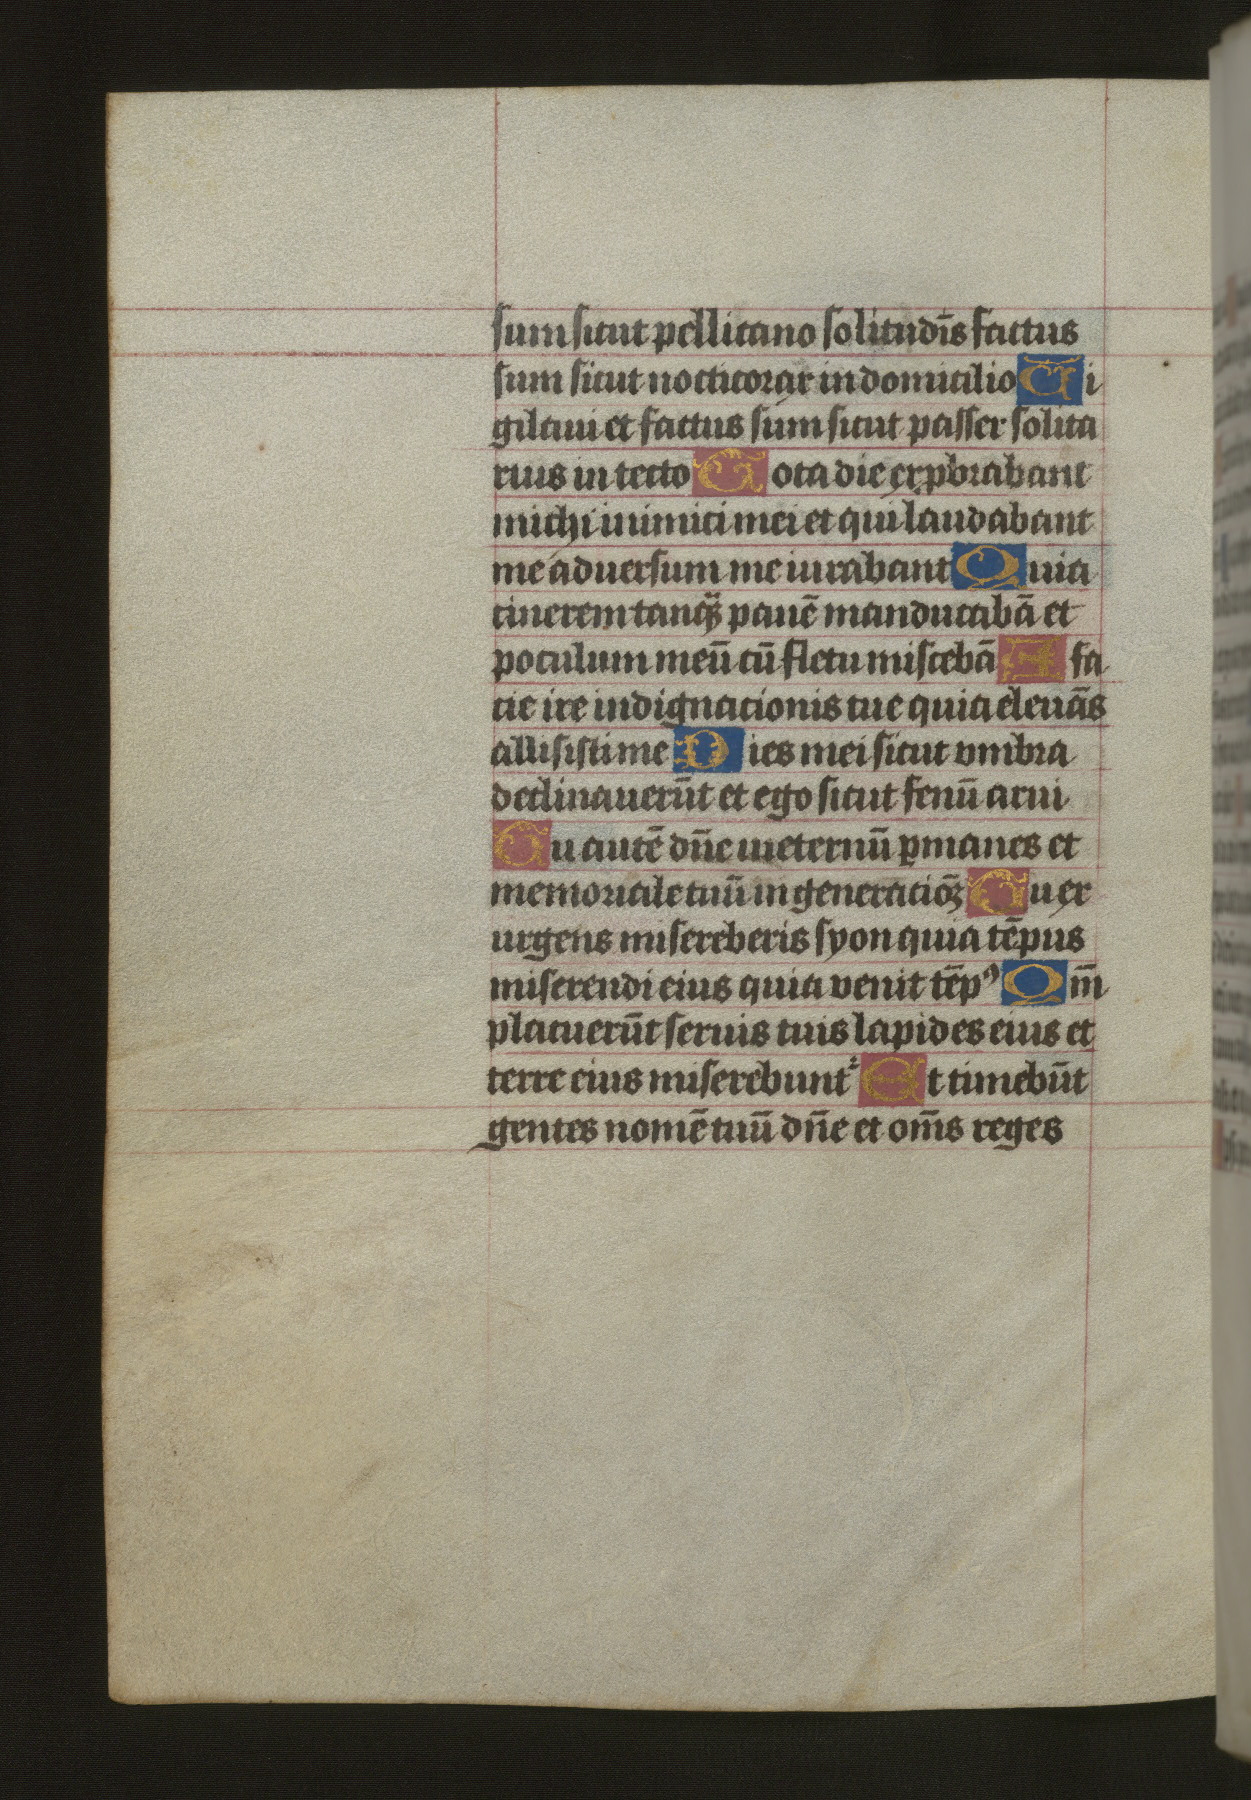 sum sicut pellicano solitudīs factus
sum sicut nocticorax in domicilio Vi
gilaui et factus sum sicut passer solita
rius in tecto Tota die exp̱brabant
michi inimici mei et qui laudabant
me aduersum me iurabant Quia
cinerem tanqꝫ panē manducabā et
poculum meū cū fletu miscebā A fa
cie ire indignacionis tue quia eleuās
allisisti me Dies mei sicut vmbra
declinauerūt et ego sicut fenū arui
Tu autē dn̄e ineternū ꝑmanes et
memoriale tuū in generatiōꝫ Tu ex
urgens misereberis syon quia tēpus
miserendi eius quia venit tēpꝰ Qm̄
placuerūt seruis tuis lapides eius et
terre eius miserebuntᷣ Et timebūt
gentes nomē tuū dn̄e et om̄s reges